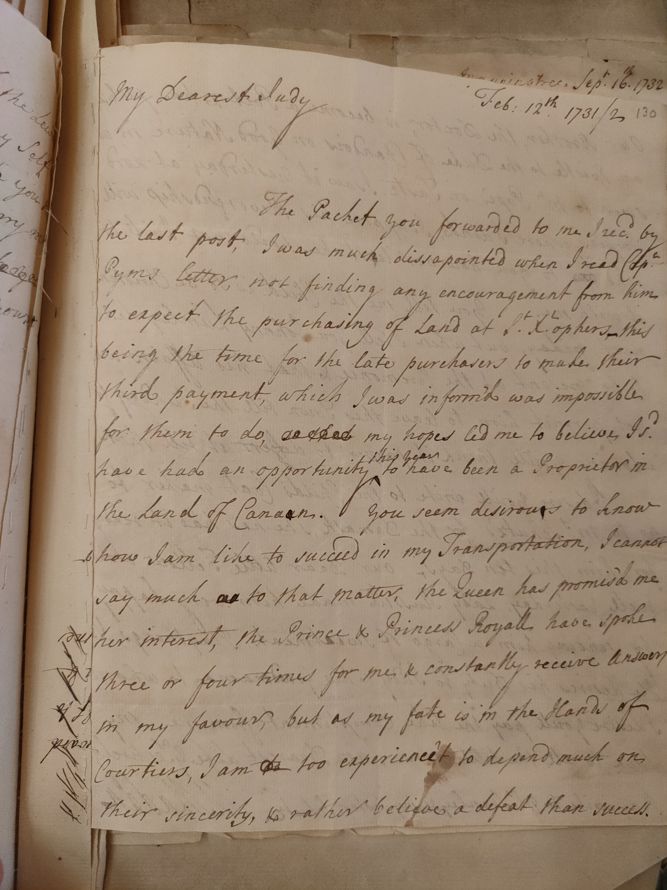 Sept. 16th. 1732
Feb: 12th. 1731/2 130
My Dearest Judy
The Packet you forwarded to me I recd. by
the last post, I was much dissapointed when I read Capt.
Pyms letter, not finding any encouragement from him
to expect the purchasing of Land at St. Xtophers this
being the time for the late purchasers to make their
third payment, which I was inform'd was impossible
for them to do, my hopes led me to believe, I sd.
this year
have had an opportunity to have been a Proprietor in
the Land of Canaan. You seem desirous to know
how I am like to succeed in my Transportation, I cannot
say much as to that matter, the Queen has promis'd me
her interest, the Prince & Princess Royall have spoke
three or four times for me & constantly receive Answers
in my favour, but as my fate is in the Hands of
Courtiers, I am too experienc't to depend much on
their sincerity, & rather believe a defeat than success.